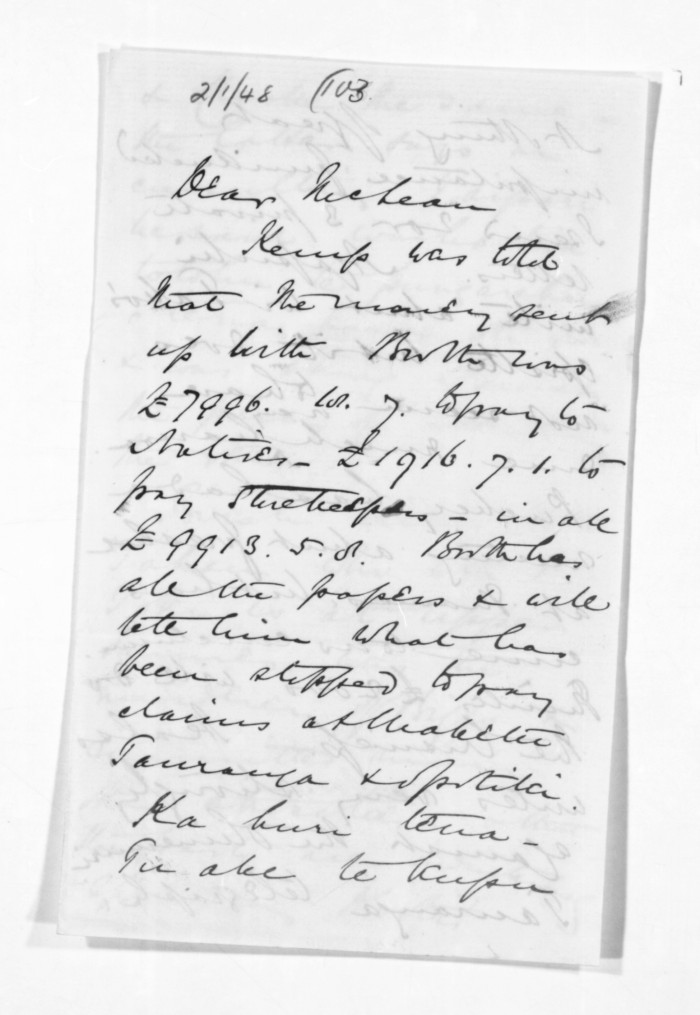 2/1/48 (103.
Dear McLean
Kemp was told
that the money sent
up with Booth was
£7996. 18. 7. to pay to
Natives - £1916. 7. 1. to
pay Storekeepers - in all
£9913. 5. 8. Booth has
all the papers & will
tell him what has
been stopped to pay
claims at Maketu
Tauranga & Opotiki.
Ka huri tena -
Tu ake te kupu